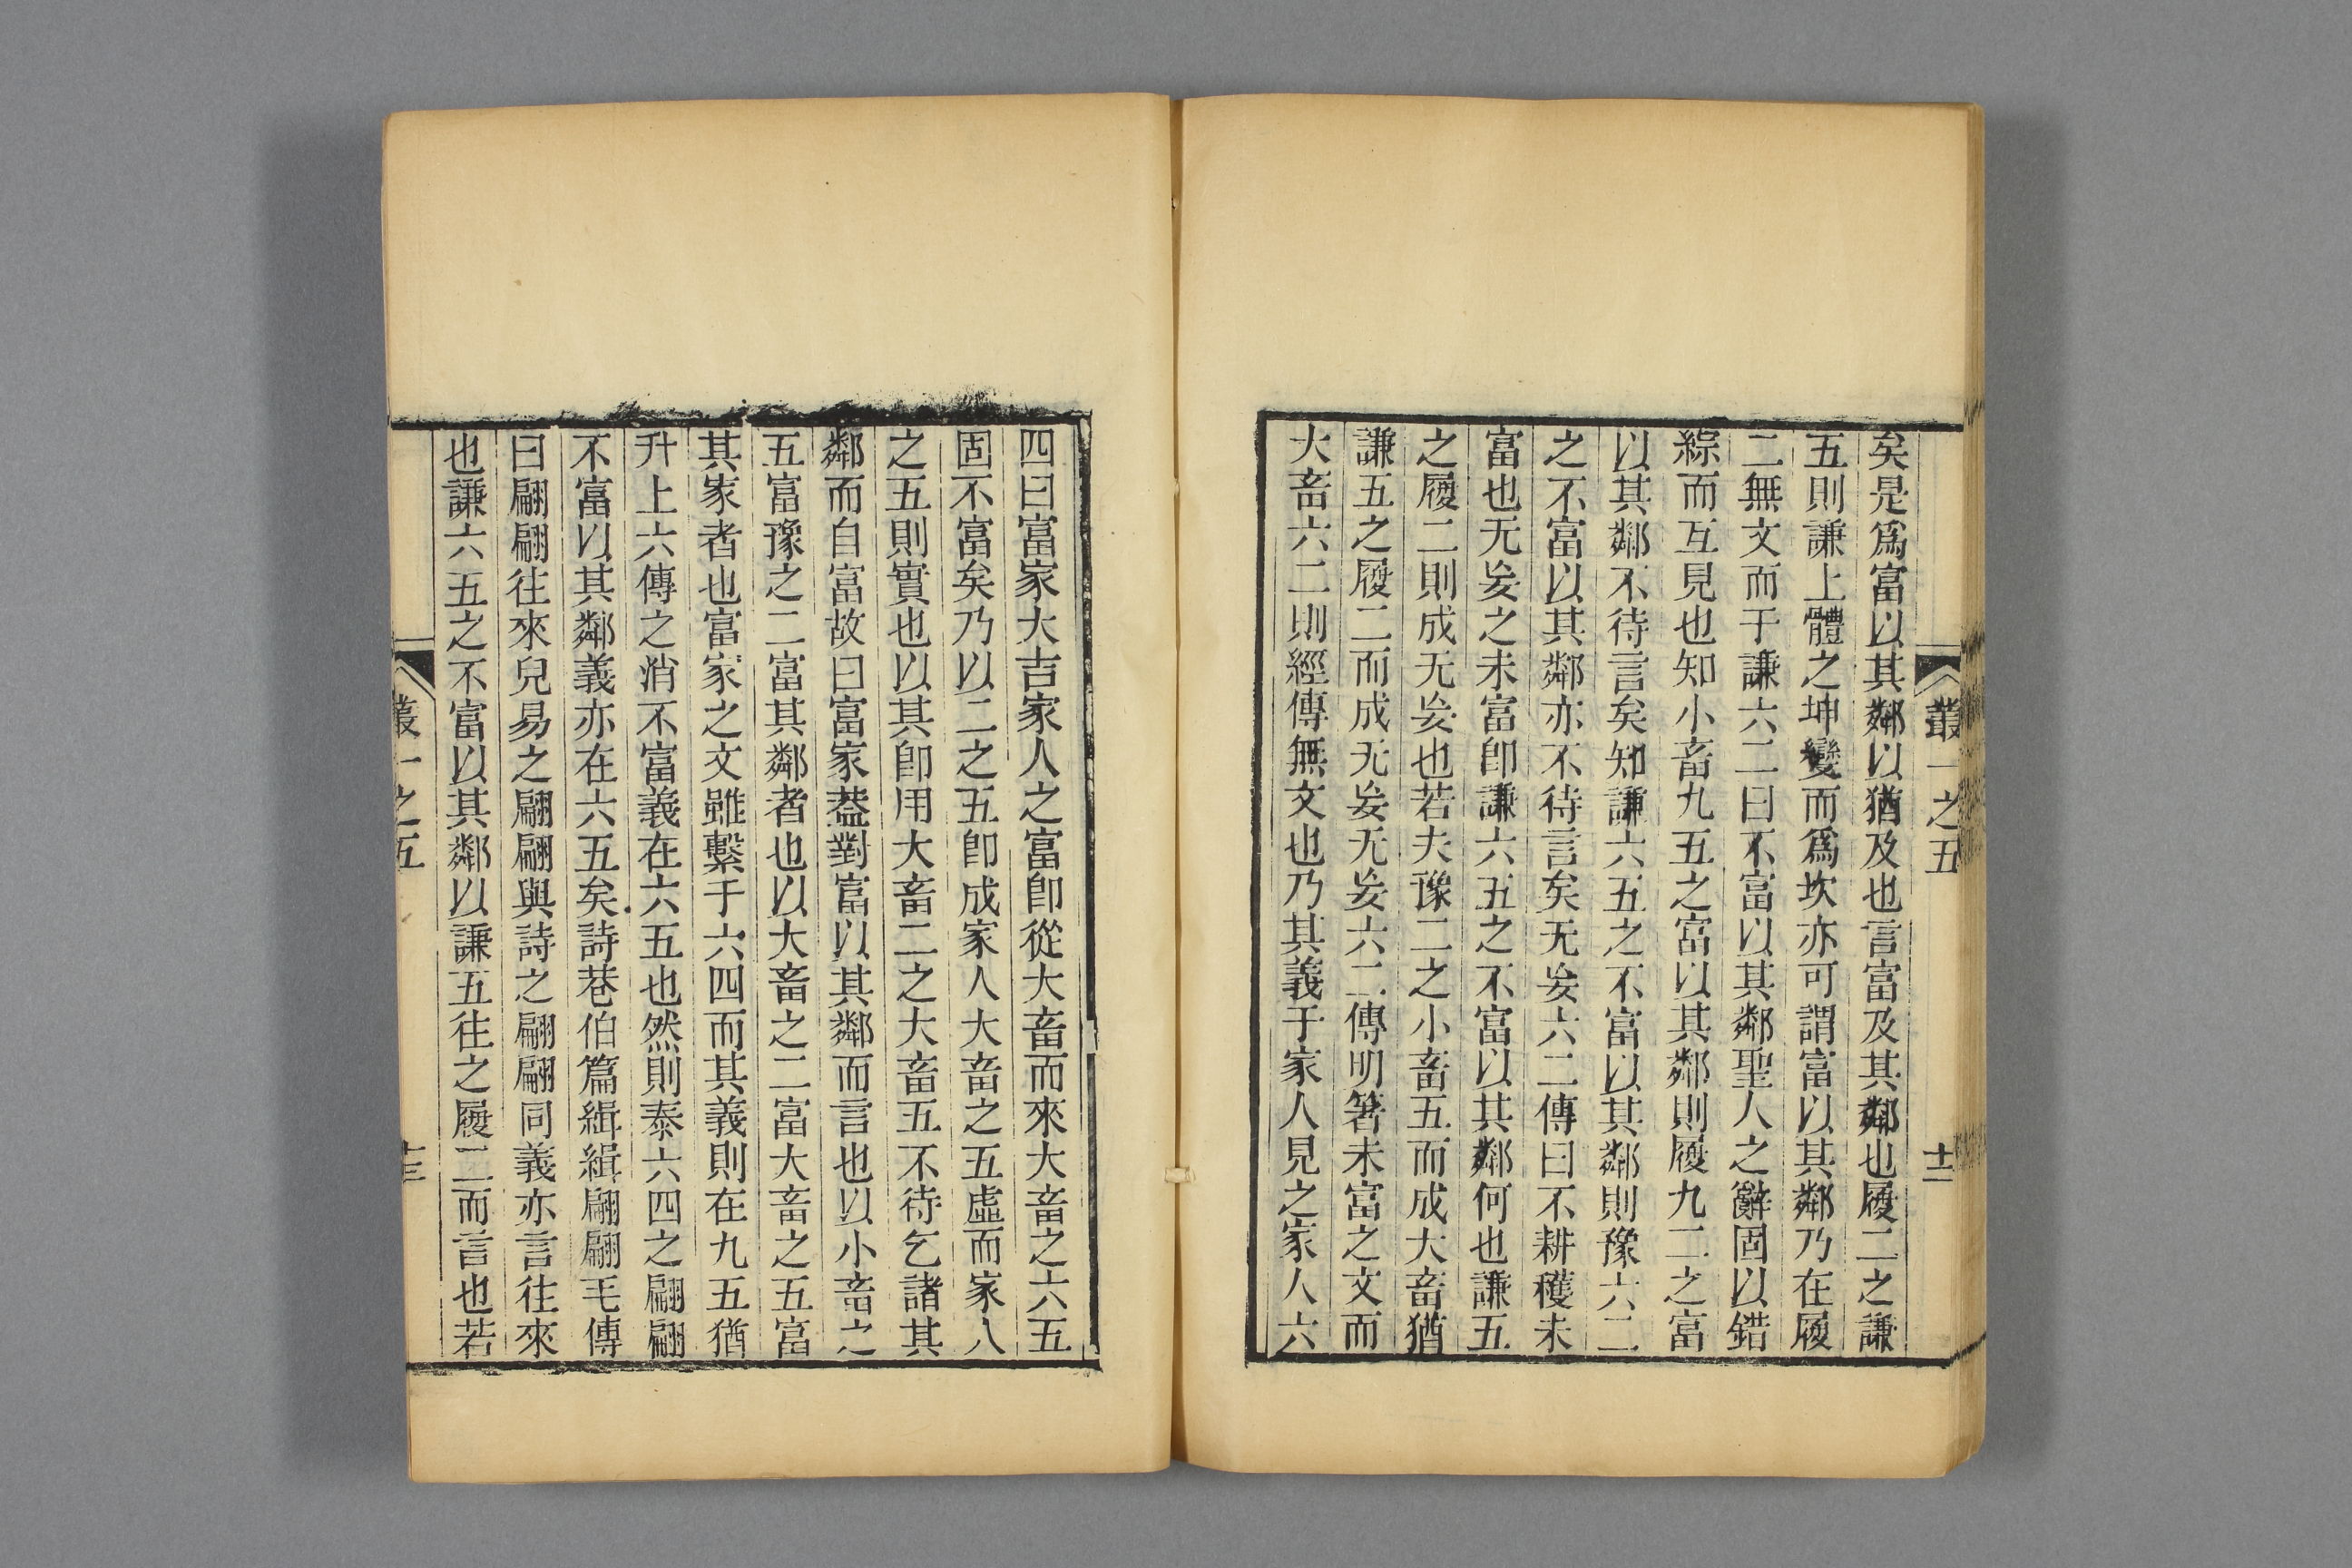 叢一之五
十二
矣是爲富以其鄰以猶及也言富及其鄰也履二之謙
五則謙上體之坤變而爲坎亦可謂富以其鄰乃在履
二無文而于謙六二曰不富以其鄰聖人之辭固以錯
綜而互見也知小畜九五之富以其鄰則履九二之富
以其鄰不待言矣知謙六五之不富以其鄰則豫六二
之不富以其鄰亦不待言矣无妄六二傳曰不耕穫未
富也无妄之未富卽謙六五之不富以其鄰何也謙五
之履二則成无妄也若夫豫二之小畜五而成大畜猶
謙五之履二而成无妄无妄六二傳明箸未富之文而
大畜六二則經傳無文也乃其義于家人見之家人六
四曰富家大吉家人之富卽從大畜而來大畜之六五
固不富矣乃以二之五卽成家人大畜之五虛而家人
之五則實也以其卽用大畜二之大畜五不待乞諸其
鄰而自富故曰富家葢對富以其鄰而言也以小畜之
五富豫之二富其鄰者也以大畜之二富大畜之五富
其家者也富家之文雖繫于六四而其義則在九五猶
升上六傳之消不富義在六五也然則泰六四之翩翩
不富以其鄰義亦在六五矣詩巷伯篇緝緝翩翩毛傳
曰翩翩往來皃易之翩翩與詩之翩翩同義亦言往來
也謙六五之不富以其鄰以謙五往之履二而言也若
叢一之五
十三